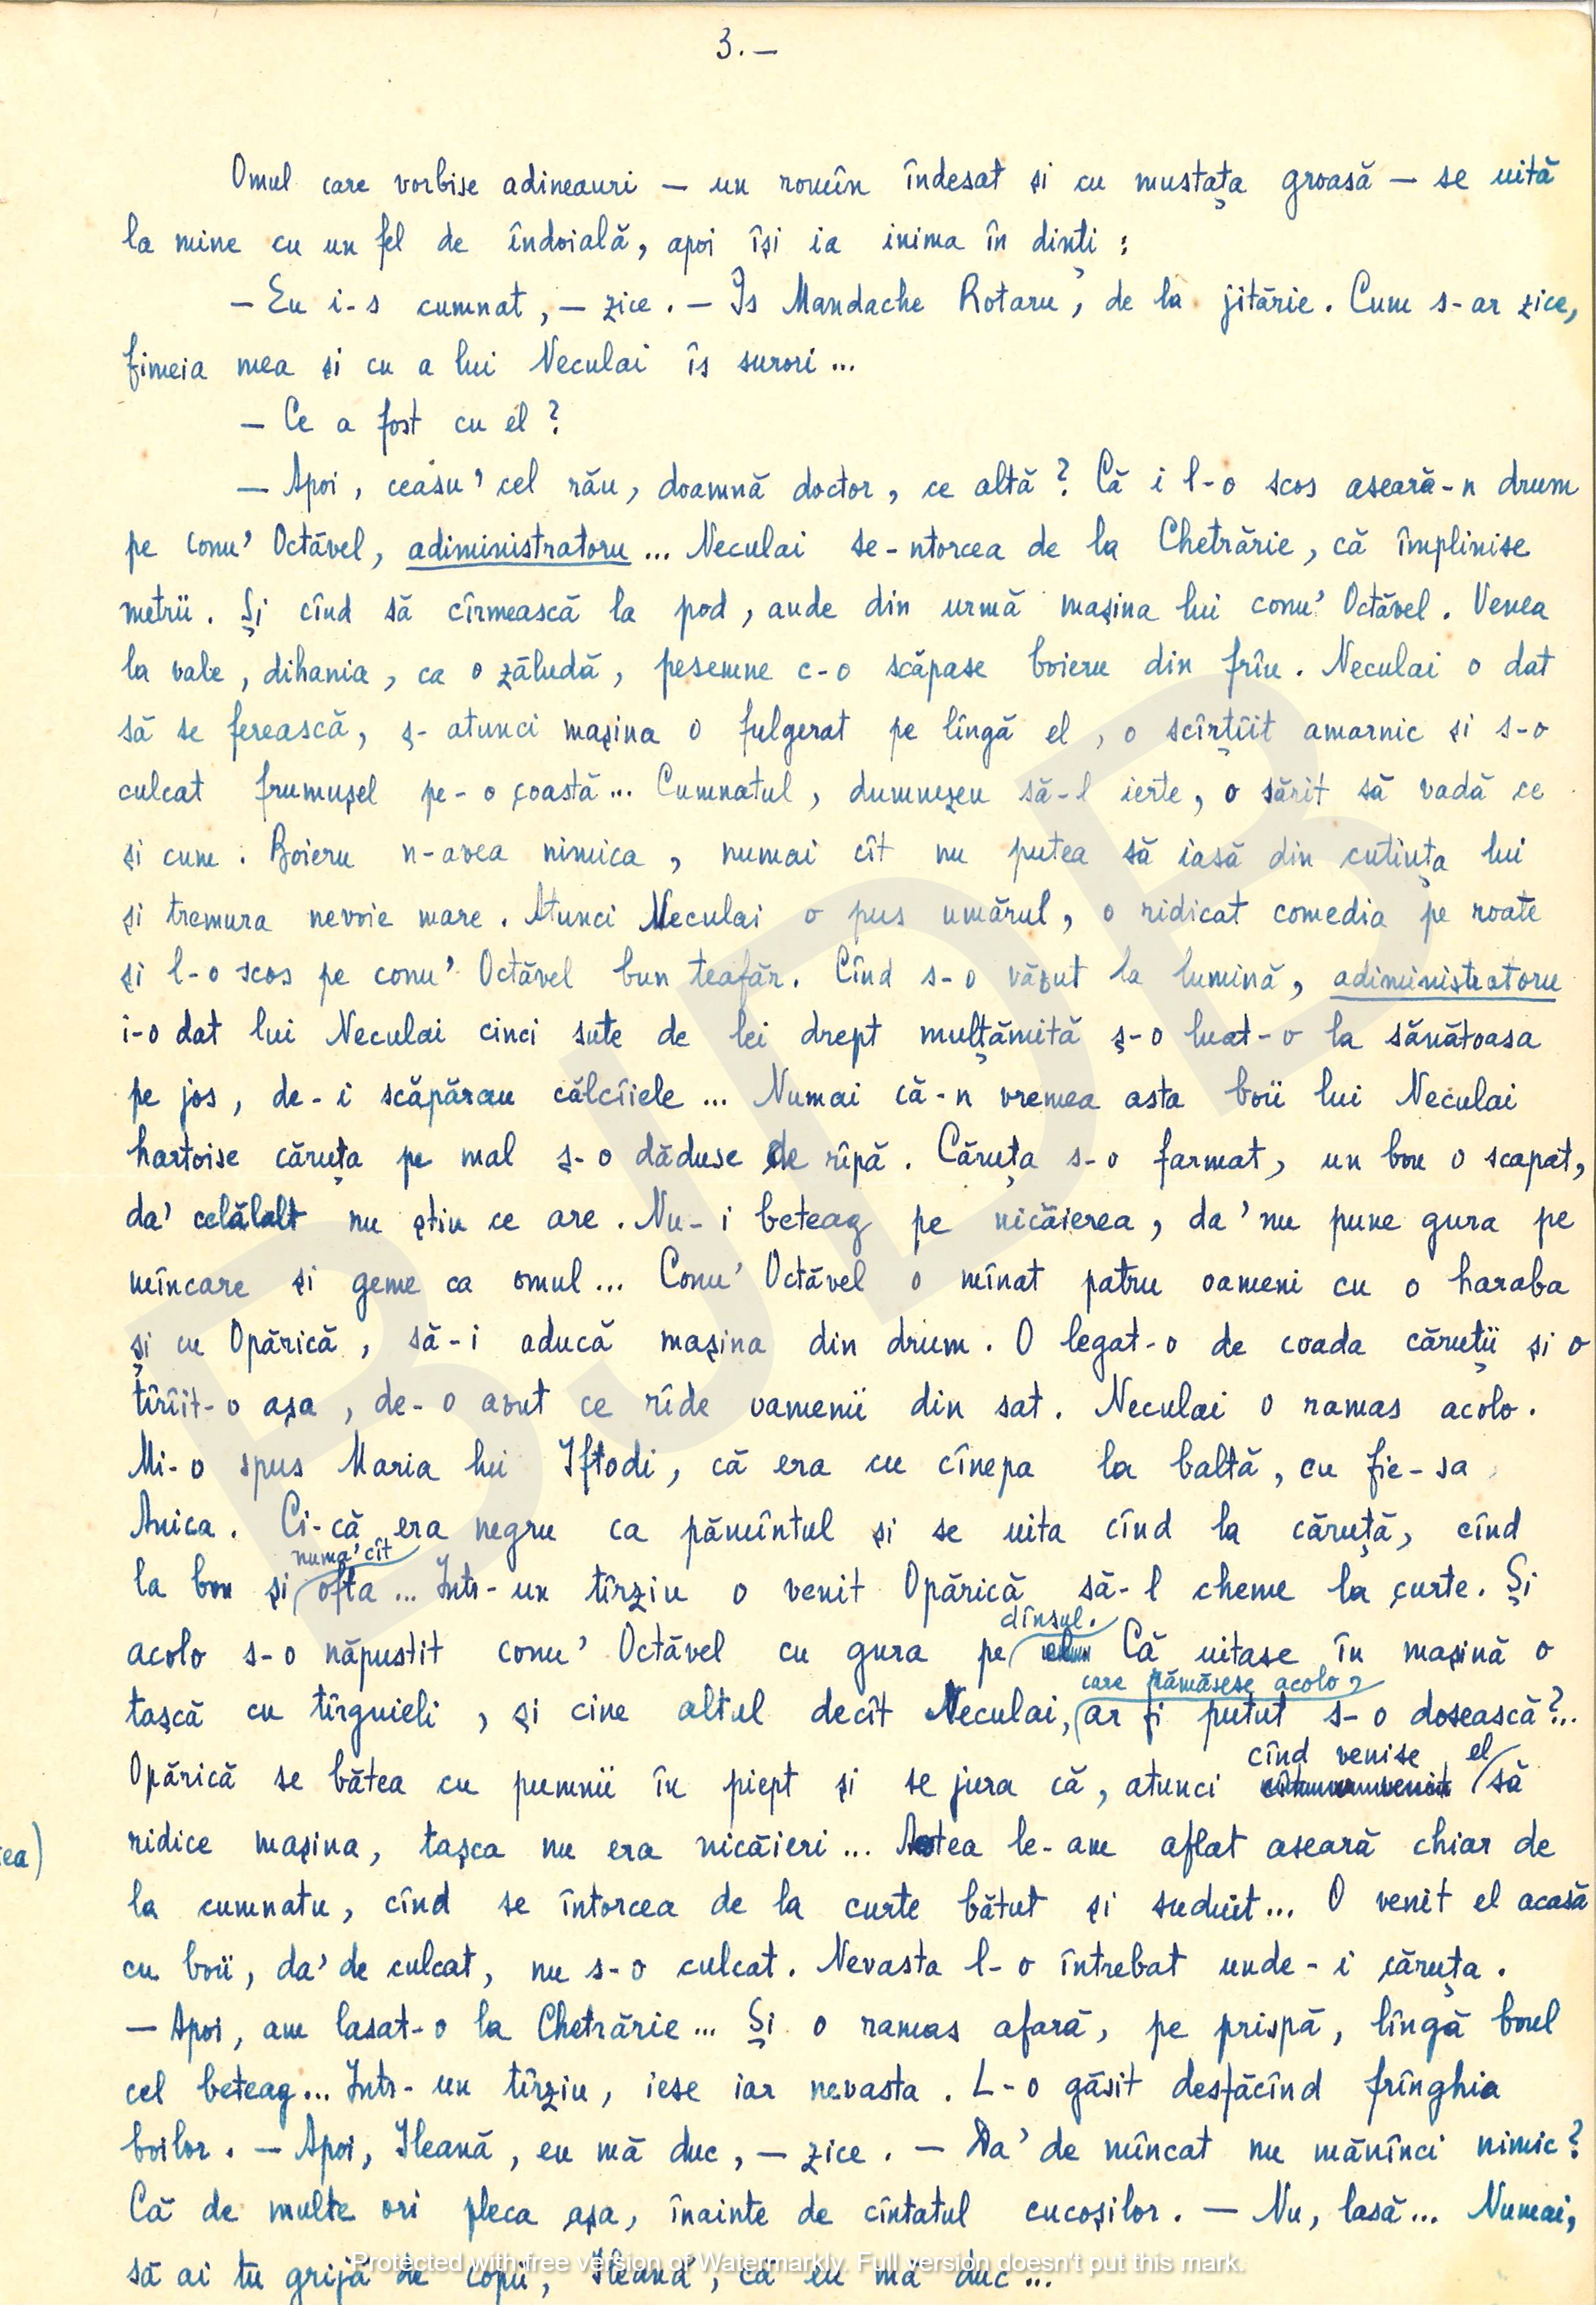 3.—
Omul care vorbise adineauri — un romîn îndesat și cu mustața groasă — se uită
la mine cu un fel de îndoială, apoi își ia inima în dinți :
— Eu i-s cumnat, — zice. — Îs Mandache Rotaru, de la jitărie. Cum s-ar zice,
fimeia mea și cu a lui Neculai îs surori ...
— Ce a fost cu el ?
— Apoi, ceasu' cel rău, doamnă doctor, ce altă ? Că i l-o scos aseară-n drum
pe conu' Octăvel, adiministratoru ... Neculai se-ntorcea de la Chetrărie, că împlinise
metrii. Și cînd să cîrmească la pod, aude din urmă mașina lui conu' Octăvel. Venea
la vale, dihania, ca o zăludă, pesemne c-o scăpase boieru din frîu. Neculai o dat
să se ferească, ș-atunci mașina o fulgerat pe lîngă el, o scîrțîit amarnic și s-o
culcat frumușel pe-o coastă ... Cumnatul, dumnezeu să-l ierte, o sărit să vadă ce
și cum. Boieru n-avea nimica, numai cît nu putea să iasă din cutiuța lui
și tremura nevoie mare. Atunci Neculai o pus umărul, o ridicat comedia pe roate
și l-o scos pe conu' Octăvel bun teafăr. Cînd s-o văzut la lumină, adiministratoru
i-o dat lui Neculai cinci sute de lei drept mulțămită ș-o luat-o la sănătoasa
pe jos, de-i scăpărau călcîiele ... Numai că-n vremea asta boii lui Neculai
hartoise căruța pe mal ș-o dăduse de rîpă. Căruța s-o farmat, un bou o scapat,
da' celălalt nu știu ce are. Nu-i beteag pe nicăierea, da' nu pune gura pe
mîncare și geme ca omul ... Conu' Octăvel o mînat patru oameni cu o haraba
și cu Opărică, să-i aducă mașina din drum. O legat-o de coada căruții și o
tîrîit-o așa, de-o avut ce rîde oamenii din sat. Neculai o ramas acolo.
Mi-o spus Maria lui Iftodi, că era cu cînepa la baltă, cu fie-sa
Anica. Ci-că era negru ca pămîntul și se uita cînd la căruță, cînd
numa' cît
la bou și ofta ... Într-un tîrziu o venit Opărică să-l cheme la curte. Și
dînsul.
acolo s-o năpustit conu' Octăvel cu gura pe el Că uitase în mașină o
care rămăsese acolo,
tașcă cu tîrguieli, și cine altul decît Neculai, ar fi putut s-o dosească ?..
cînd venise el
Opărică se bătea cu pumnii în piept și se jura că, atunci să
ridice mașina, tașca nu era nicăieri ... Astea le-am aflat aseară chiar de
ea)
la cumnatu, cînd se întorcea de la curte bătut și suduit ... O venit el acasă
cu boii, da' de culcat, nu s-o culcat. Nevasta l-o întrebat unde-i căruța.
— Apoi, am lasat-o la Chetrărie ... Și o ramas afară, pe prispă, lîngă boul
cel beteag ... Într-un tîrziu, iese iar nevasta. L-o găsit desfăcînd frînghia
boilor. — Apoi, Ileană, eu mă duc, — zice. — Da' de mîncat nu mănînci nimic ?
Că de multe ori pleca așa, înainte de cîntatul cucoșilor. — Nu, lasă ... Numai,
să ai tu grijă de copii, Ileană, că eu mă duc ...
BJDB
Protected with free version of Watermarkly. Full version doesn't put this mark.